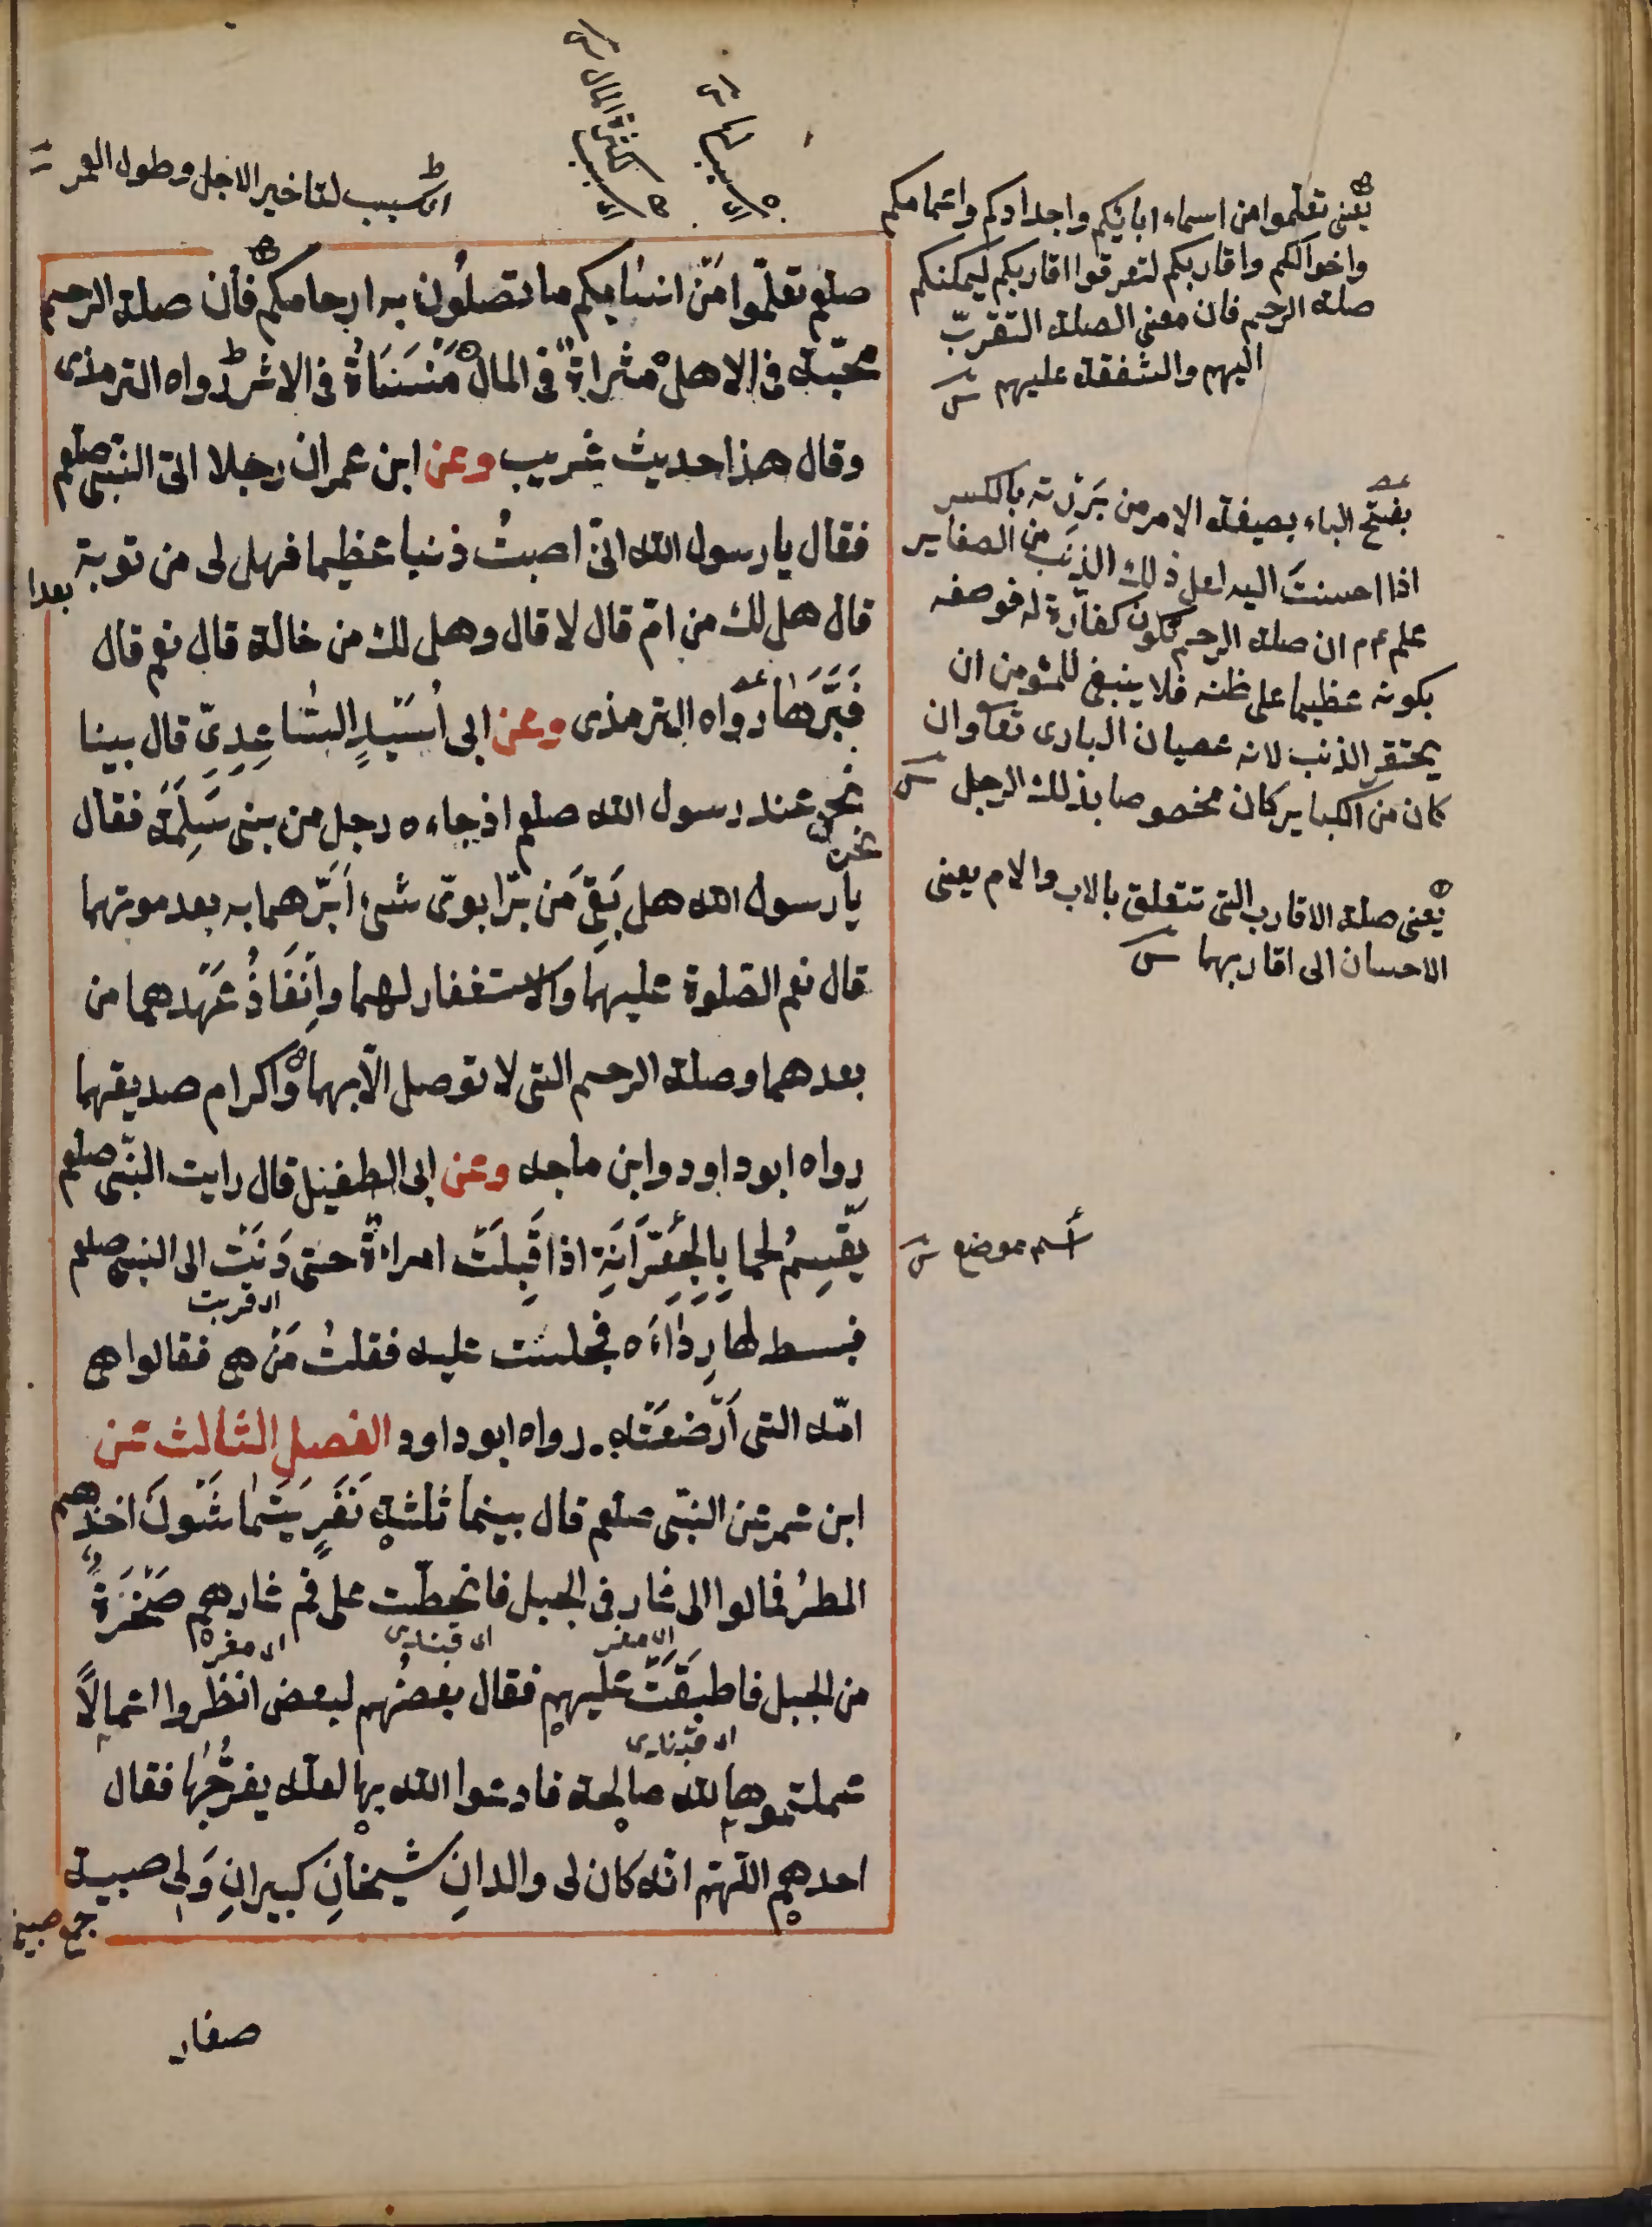 ای سبب لتاخير الاجل وطول العمر
ای سبب لكثرة المال
ای سبب لها
صلعم تعلّموا من انسابكم ما تصلُون به ارحامكم فان صلة الرحم
محبّة فی الاهل مثراة فی المال مَنْسَأَةٌ فی الاثر رواه الترمذی
وقال هذا حديث غريب وعن ابن عمر ان رجلا اتى النبی صلعم
فقال يا رسول الله انّی اصبتُ ذنبا عظيما فهل لی من توبة
قال هل لك من امّ قال لا قال وهل لك من خالة قال نعم قال
فَبَرَّهَا رواه الترمذی وعن ابی اُسَيْدٍ السَّاعِدِیّ قال بينا
نحن عند رسول الله صلعم اذ جاءه رجل من بنی سَلِمَة فقال
نحن
يا رسول الله هل بَقِیَ من برّ ابویّ شیء اَبَرّهما به بعد موتهما
قال نعم الصّلوة عليهما والاستغفار لهما واِنْفَاذُ عَهْدهما من
بعدهما وصلة الرحم التی لا توصل الّا بهما واكرام صديقهما
رواه ابو داود وابن ماجه وعن ابی الطفيل قال رايت النبّی صلعم
يَقْسِمُ لحما بِالجِعِرَّانَةِ اذ اقبلَتْ امراةٌ حتى دَنَتْ الى النبی صلعم
ای قربت
فبسط لها رِدَاءَه فجلست عليه فقلتُ مَن هی فقالوا هی
امّه التی اَرْضَعَتْه رواه ابو داود الفصل الثالث عن
ابن عمر عن النبّی صلعم قال بينما ثلثة نَفَرٍ يَتَمَاشَوْنَ اخذهم
المطرُ فمالوا الى غار فی الجبل فانحطّت على فم غارهم صَخْرَةٌ
من الجبل فاطبقَتْ عليهم فقال بعضُهم لبعض انظروا اعمالاً
عملتموها لله صالحة فادعوا الله بها لعلّه يفرّجُها فقال
احدهم اللّهمّ انّه كان لی والدانِ شيخانِ كبيرانِ وَلِی صبية
صغار
يعنی تعلّموا من اسماء ابائكم واجدادكم واعمامكم
واخوالكم واقاربكم لتعرفوا اقاربكم ليمكنكم
صلة الرحم فان معنى الصلة التقرب
اليهم والشفقة عليهم
بفتح الباء بصيغة الامر من بَرِرْته بالكسر
اذا احسنتَ اليه لعل ذلك الذنب من الصغاير
علم عم ان صلة الرحم تكون كفارة له فوصفه
بكونه عظيما على ظنه فلا ينبغی للمؤمن ان
يحتقر الذنب لانه عصيان الباری تعا وان
كان من الكباير كان مخصوصا بذلك الرجل
يعنی صلة الاقارب التی تتعلق بالاب والام يعنی
الاحسان الى اقاربهما
اسم موضع